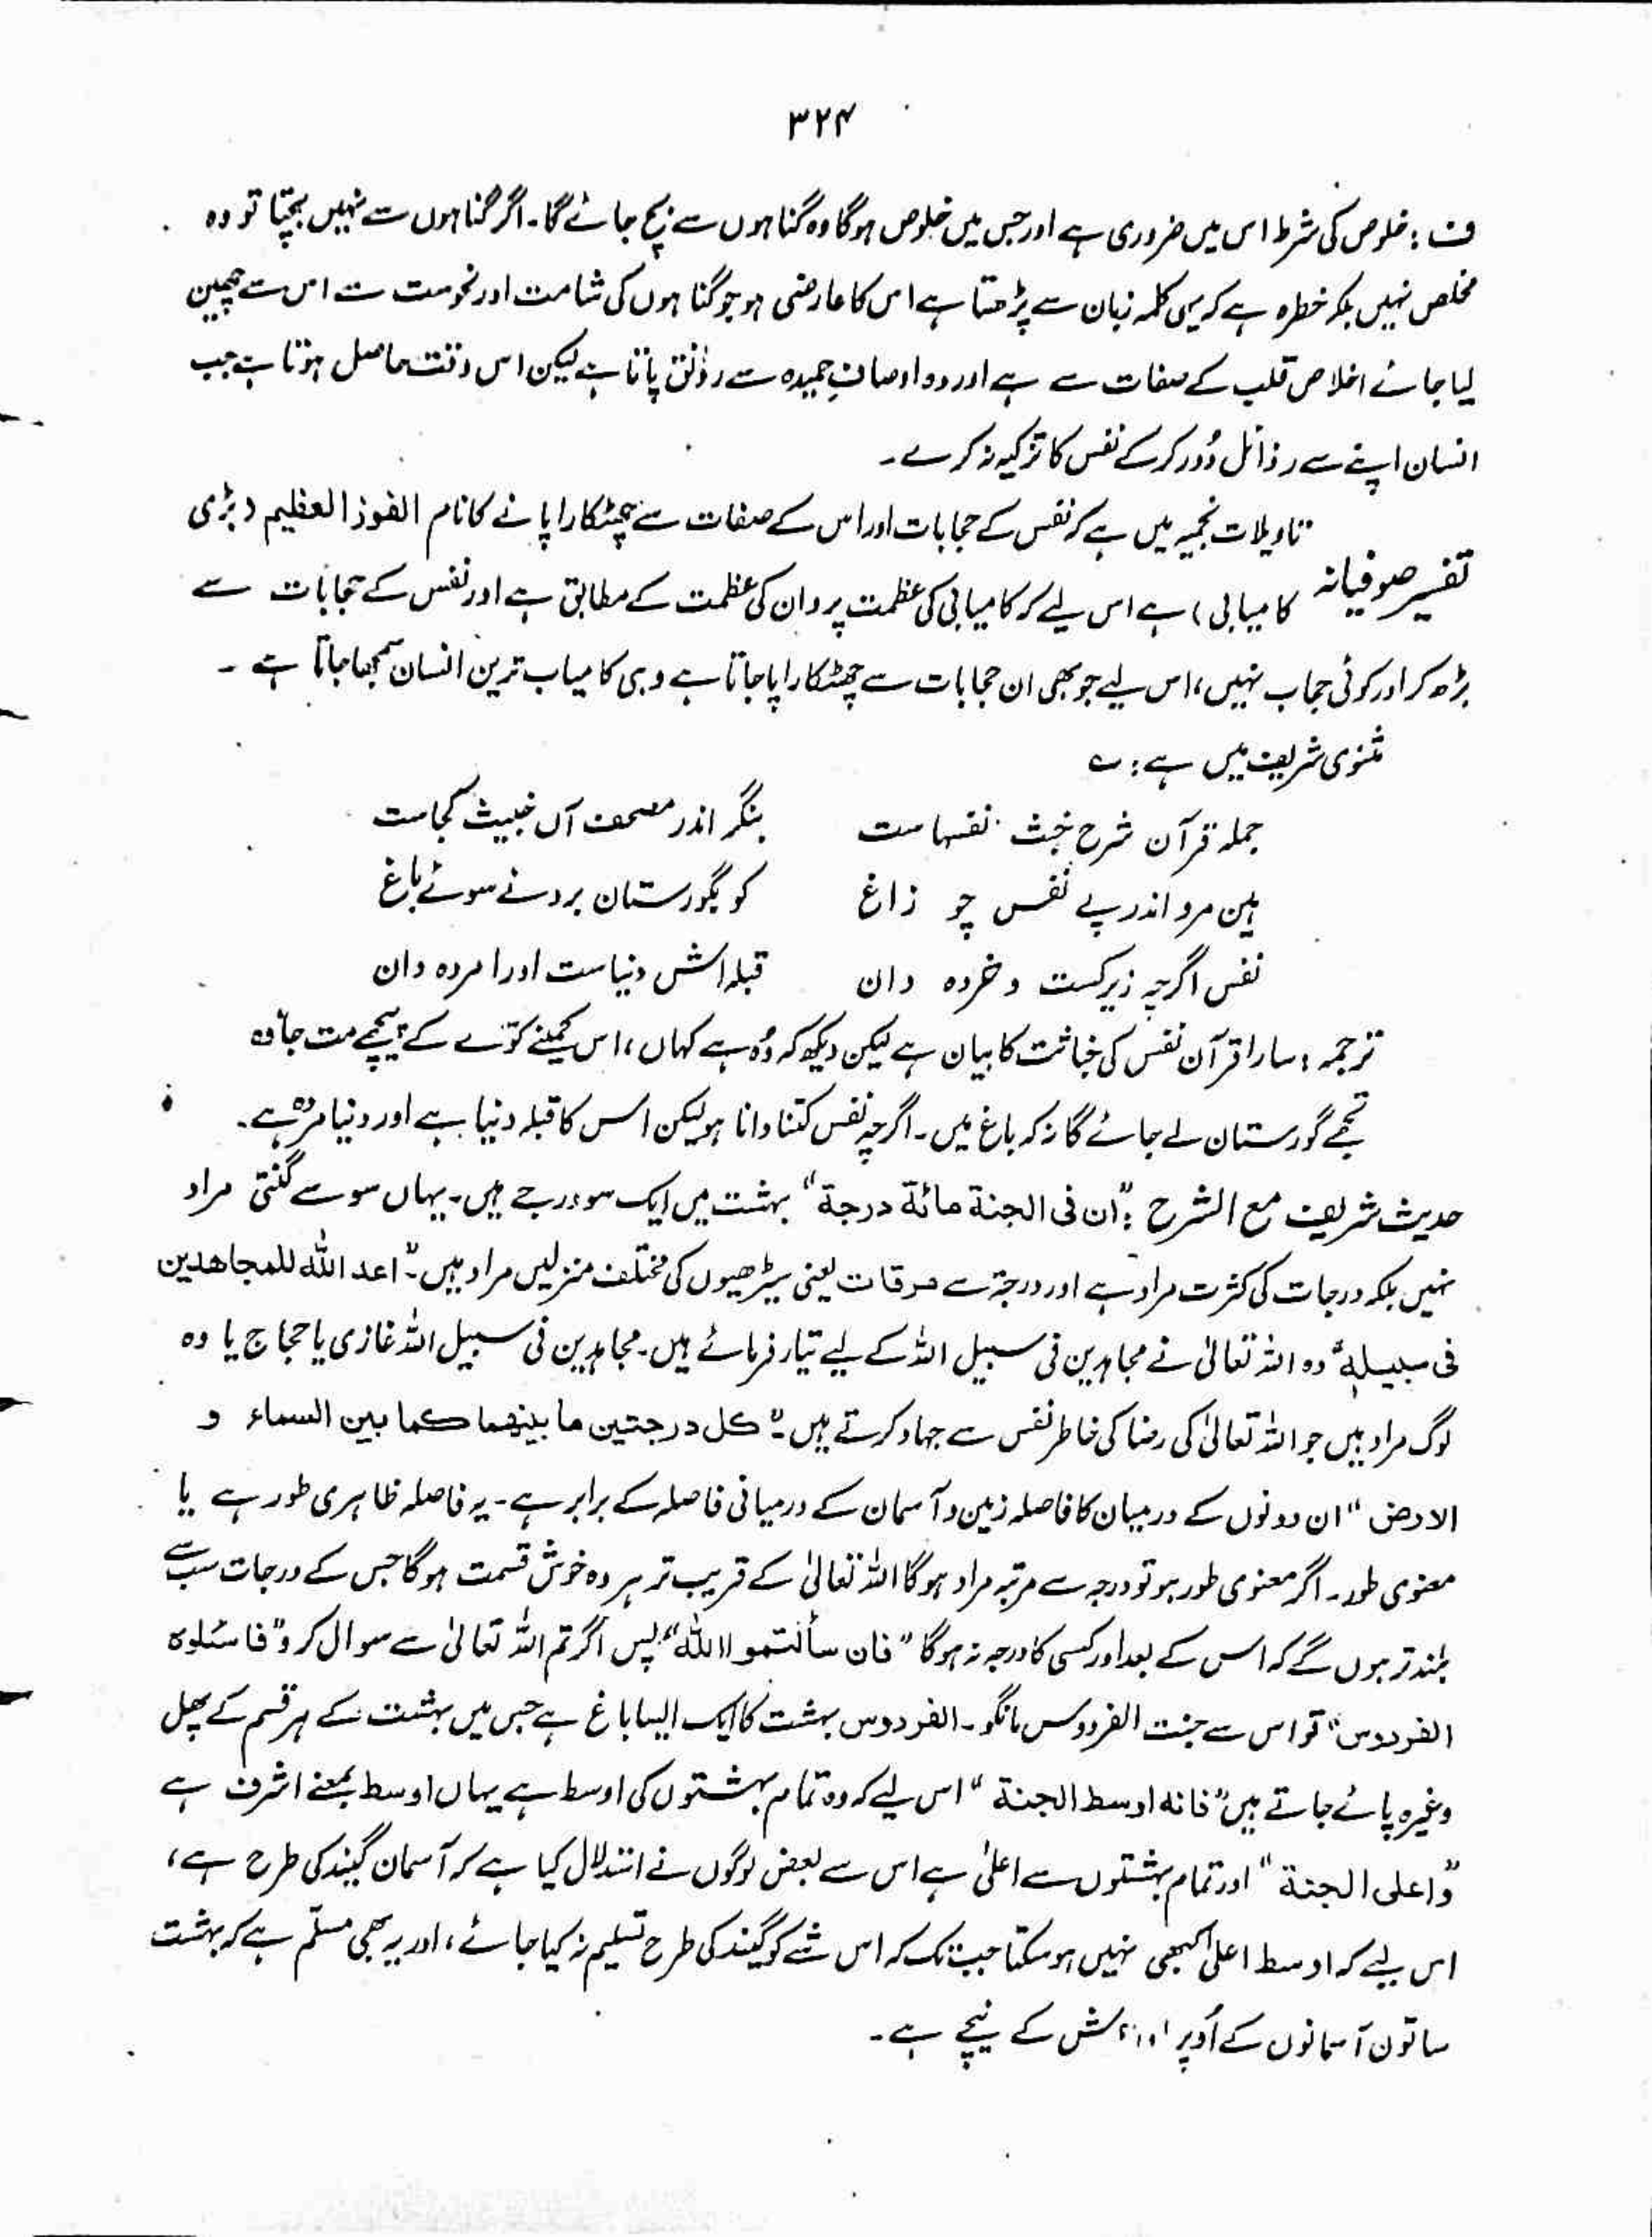 ۳۲۴
ف : خلوص کی شرط اس میں ضروری ہے اور جس میں خلوص ہوگا وہ گناہوں سے بچ جائے گا۔ اگر گناہوں سے نہیں بچتا تو وہ
مخلص نہیں بلکہ خطرہ ہے کہ یہی کلمہ زبان سے پڑھتا ہے اس کا عارضی ہو جو گناہوں کی شامت اور نحوست سے اس سے چھین
لیا جائے اخلاص قلب کے صفات سے ہے اور وہ اوصافِ حمیدہ سے رونق پاتا ہے لیکن اس وقت حاصل ہوتا ہے جب
انسان اپنے سے رذائل دُور کرکے نفس کا تزکیہ نہ کرے۔
تاویلات نجمیہ میں ہے کہ نفس کے حجابات اور اس کے صفات سے چھٹکارا پانے کا نام الفوز العظیم (بڑی
تفسیر صوفیانہ
کامیابی) ہے اس لیے کہ کامیابی کی عظمت پروان کی عظمت کے مطابق ہے اور نفس کے حجابات سے
بڑھ کر اور کوئی حجاب نہیں، اس لیے جو بھی ان حجابات سے چھٹکارا پا جاتا ہے وہی کامیاب ترین انسان سمجھا جاتا ہے ۔
مثنوی شریف میں ہے : ؎
جملہ قرآن شرح خبث نفسہاست بنگر اندر مصحف آں خبیث کجاست
ہین مرو اندر پے نفس چو زاغ کو بگورستان برد نے سوئے باغ
نفس اگرچہ زیرکست و خردہ دان قبلہ اش دنیاست اورا مردہ دان
ترجمہ : سارا قرآن نفس کی خباثت کا بیان ہے لیکن دیکھ کہ وُہ ہے کہاں، اس کمینے کوّے کے پیچھے مت جا وہ
تجھے گورستان لے جائے گا نہ کہ باغ میں۔ اگرچہ نفس کتنا دانا ہو لیکن اس کا قبلہ دنیا ہے اور دنیا مردہ ہے۔
حدیث شریف مع الشرح : "ان فی الجنة مائة درجة" بہشت میں ایک سو درجے ہیں۔ یہاں سو سے گنتی مراد
نہیں بلکہ درجات کی کثرت مراد ہے اور درجۃ سے مرقات یعنی سیڑھیوں کی مختلف منزلیں مراد ہیں۔ "اعد الله للمجاهدین
فی سبیله" وہ اللہ تعالیٰ نے مجاہدین فی سبیل اللہ کے لیے تیار فرمائے ہیں۔ مجاہدین فی سبیل اللہ غازی یا حجاج یا وہ
لوگ مراد ہیں جو اللہ تعالیٰ کی رضا کی خاطر نفس سے جہاد کرتے ہیں۔ "کل درجتین ما بینهما کما بین السماء و
الارض" ان دونوں کے درمیان کا فاصلہ زمین و آسمان کے درمیانی فاصلہ کے برابر ہے۔ یہ فاصلہ ظاہری طور ہے یا
معنوی طور۔ اگر معنوی طور ہو تو درجہ سے مرتبہ مراد ہوگا اللہ تعالیٰ کے قریب تر ہر وہ خوش قسمت ہوگا جس کے درجات سب سے
بلند تر ہوں گے کہ اس کے بعد اور کسی کا درجہ نہ ہوگا "فان سألتموا الله" پس اگر تم اللہ تعالیٰ سے سوال کرو "فاسئلوه
الفردوس" تو اس سے جنت الفردوس مانگو۔ الفردوس بہشت کا ایک ایسا باغ ہے جس میں بہشت کے ہر قسم کے پھل
وغیرہ پائے جاتے ہیں "فانه اوسط الجنة" اس لیے کہ وہ تمام بہشتوں کی اوسط ہے یہاں اوسط بمعنے اشرف ہے
"واعلی الجنة" اور تمام بہشتوں سے اعلیٰ ہے اس سے بعض لوگوں نے استدلال کیا ہے کہ آسمان گیند کی طرح ہے،
اس لیے کہ اوسط اعلیٰ کبھی نہیں ہو سکتا جب تک کہ اس شے کو گیند کی طرح تسلیم نہ کیا جائے، اور یہ بھی مسلّم ہے کہ بہشت
ساتوں آسمانوں کے اُوپر اور کے نیچے ہے۔